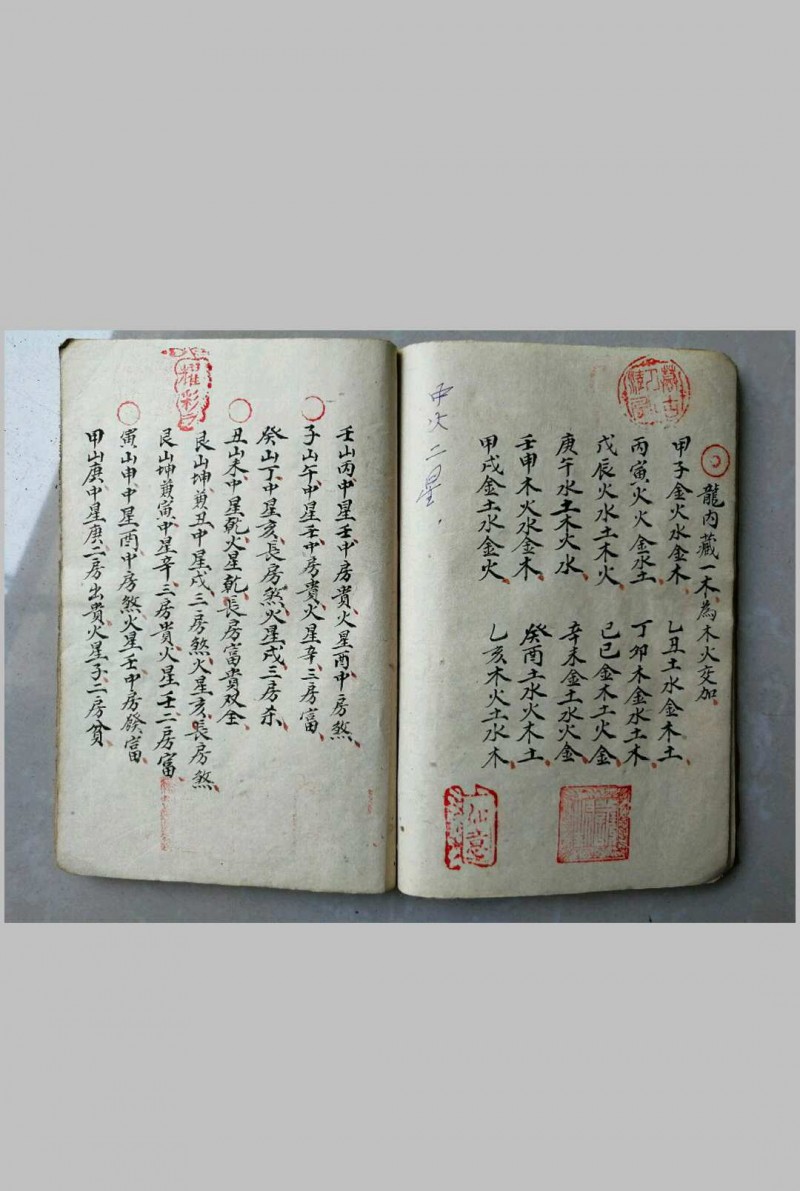 龍内藏一木為木火交加
甲子金火水金木 乙丑土水金木土
丙寅火火金水土 丁卯木金水土木
戊辰火水土木火 己巳金木土火金
庚午水土木火水 辛未金土水火金
壬申木火水金木 癸酉土水火木土
甲戌金土水金火 乙亥木火土水木
二星
壬山丙中星壬中房貴火星酉中房煞
子山午中星壬中房貴火星辛三房富
癸山丁中星亥長房煞火星戌三房杀
丑山未中星乾火星乾長房富貴双全
艮山坤兼丑中星戌三房煞火星亥長房煞
艮山坤兼寅中星辛三房貴火星壬二房富
寅山申中星酉中房煞火星壬中房發富
甲山庚中星庚二房出貴火星子二房貧
耀彩
如意